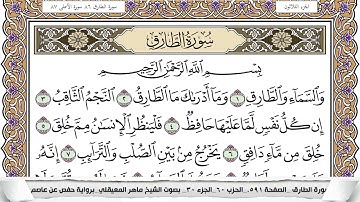 الجزء الثلاثون
سورة الطارق ٨٦ سورة الأعلى ٨٧
سُورَةُ الطَّارِقِ
بِسْمِ اللَّهِ الرَّحْمَٰنِ الرَّحِيمِ
وَالسَّمَاءِ وَالطَّارِقِ ١ وَمَا أَدْرَاكَ مَا الطَّارِقُ ٢ النَّجْمُ الثَّاقِبُ ٣
إِن كُلُّ نَفْسٍ لَّمَّا عَلَيْهَا حَافِظٌ ٤ فَلْيَنظُرِ الْإِنسَانُ مِمَّ خُلِقَ ٥
خُلِقَ مِن مَّاءٍ دَافِقٍ ٦ يَخْرُجُ مِن بَيْنِ الصُّلْبِ وَالتَّرَائِبِ ٧ إِنَّهُ
سورة الطارق ..الصفحة ٥٩١.. الحزب ٦٠.. الجزء ٣٠.. بصوت الشيخ ماهر المعيقلي ..برواية حفص عن عاصم